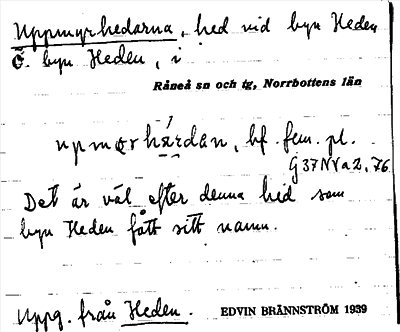 Uppmyrhedarna, hed vid byn Heden
Ö. byn Heden, i
Råneå sn och tg, Norrbottens län
upmɷrhárdan, bf. fem. pl.
G37NVa2,76
Det är väl efter denna hed som
byn Heden fått sitt namn.
Uppg. från Heden. EDVIN BRÄNNSTRÖM 1939